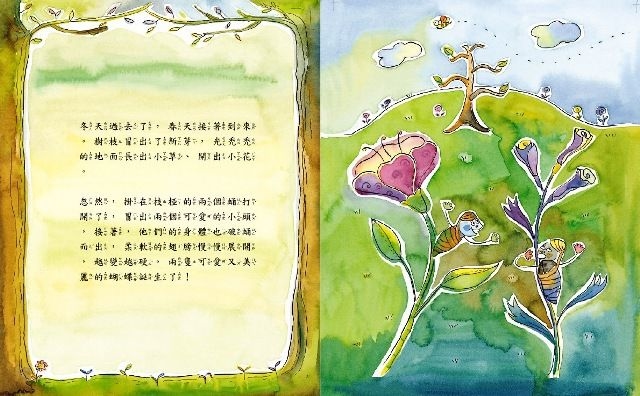 冬天過去了，春天接著到來
，樹枝冒出了新芽，光禿禿
的地面長出小草、開出小花
。
忽然，掛在枝椏的兩個蛹打
開了，冒出兩個可愛的小頭
，接著，他們的身體也破蛹
而出，柔軟的翅膀慢慢展開
，越變越硬，兩隻可愛又美
麗的蝴蝶誕生了！